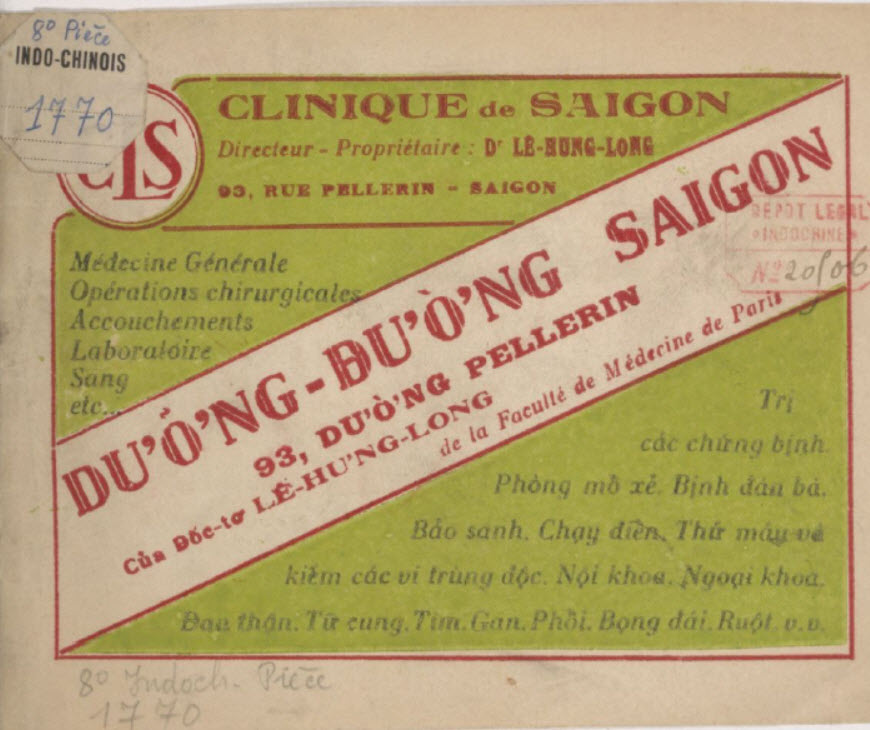 8º Pièce
INDO-CHINOIS
1770
CLS
CLINIQUE de SAIGON
Directeur - Propriétaire : Dr LÊ-HUNG-LONG
93, RUE PELLERIN - SAIGON
DEPOT LEGAL
INDOCHINE
Nº 20506
Médecine Générale
Opérations chirurgicales
Accouchements
Laboratoire
Sang
etc...
DƯỠNG-ĐƯỜNG SAIGON
93, DƯỜNG PELLERIN
Của Đốc-tơ LÊ-HƯNG-LONG
de la Faculté de Médecine de Paris
Trị
các chứng bịnh.
Phòng mổ xẻ. Bịnh đàn bà.
Bảo sanh. Chạy điền. Thử máu và
kiếm các vi trùng độc. Nội khoa. Ngoại khoa.
Đau thận. Tử cung. Tim. Gan. Phổi. Bọng đái. Ruột. v.v.
8º Indoch. Pièce
1770